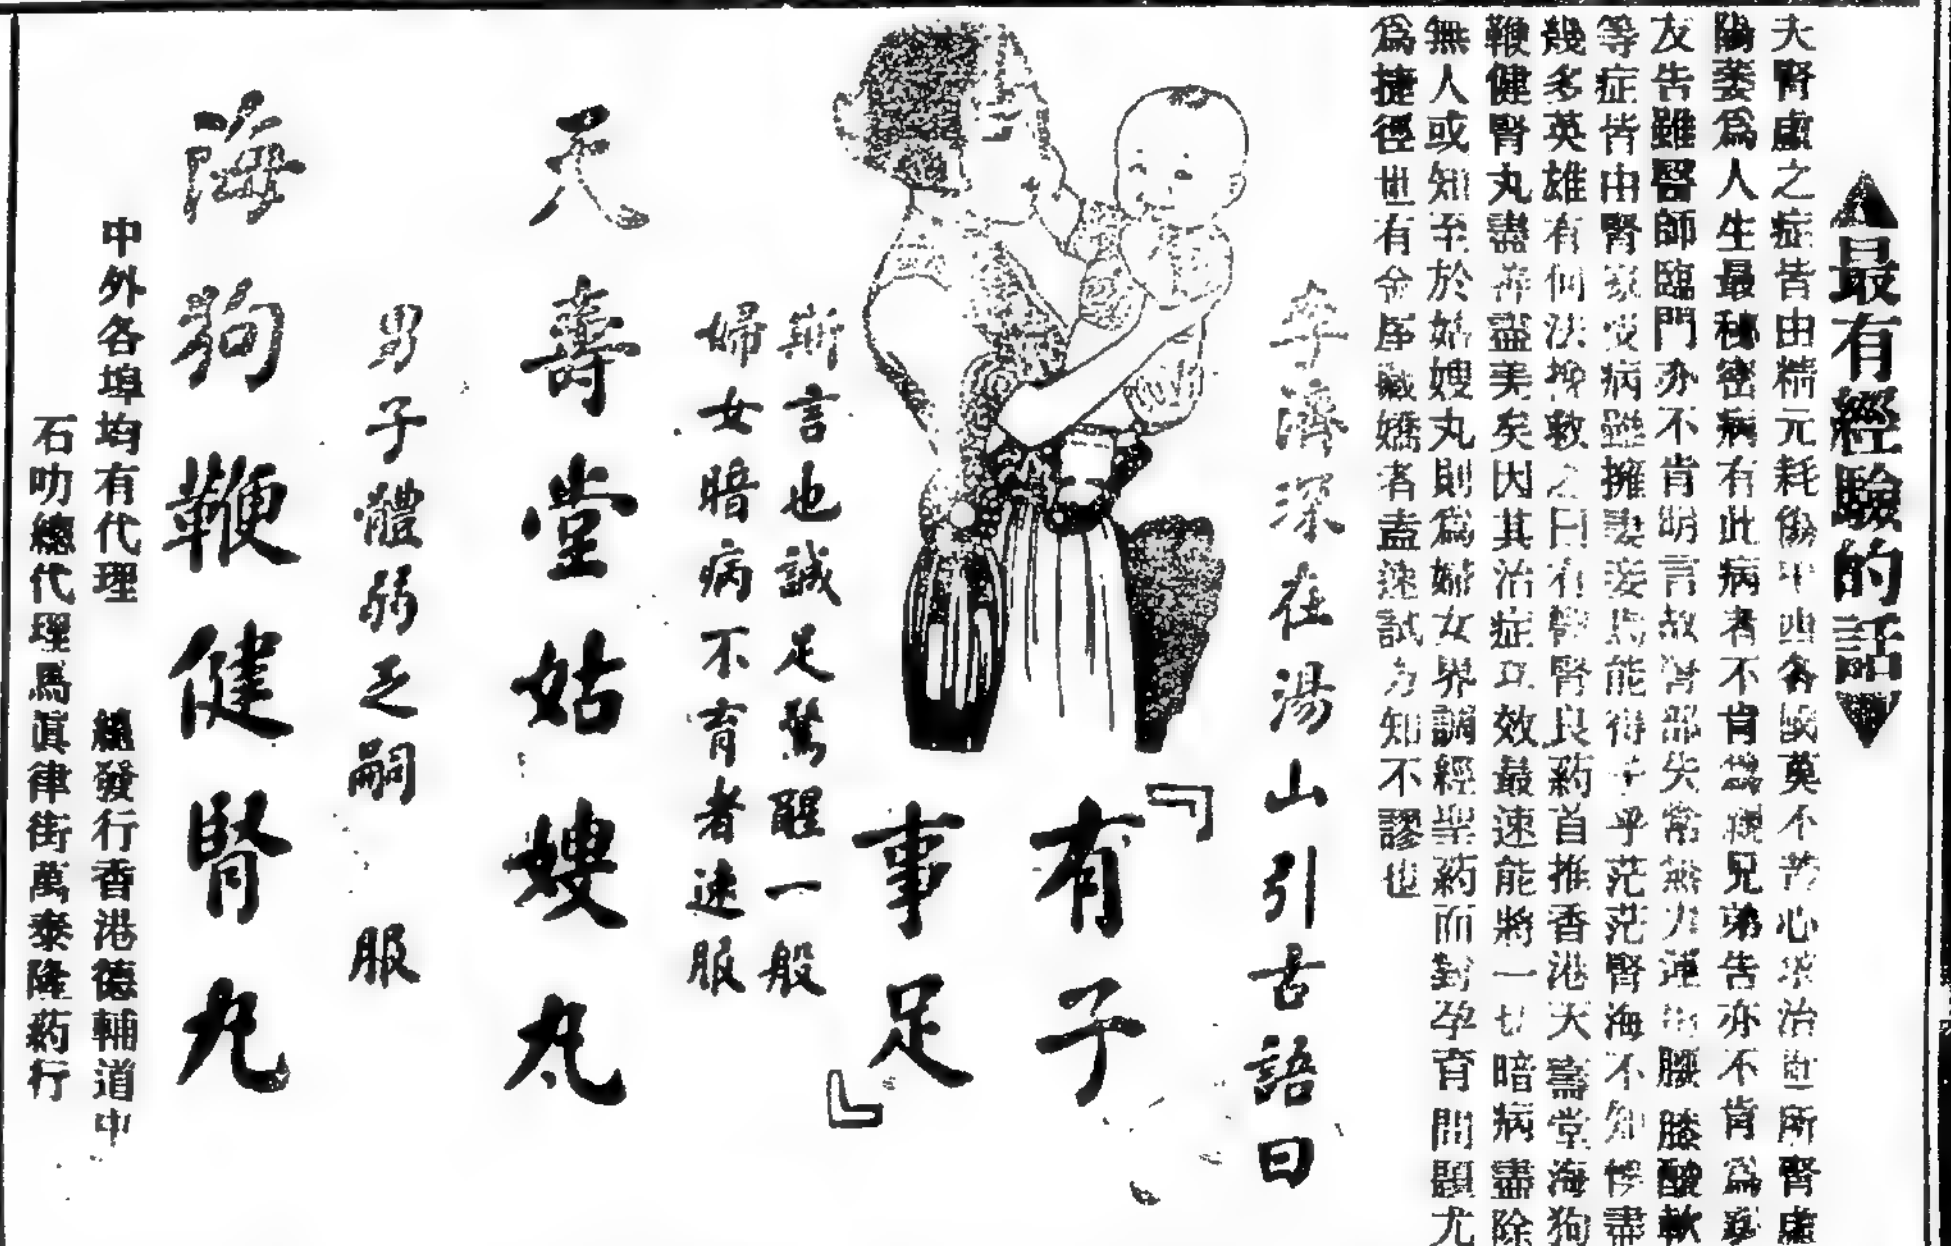 ▲最有經驗的話▼
夫腎虛之症皆由精元耗傷中西各國莫不苦心求治世所腎虛
陽萎為人生最秘密病有此病者不肯為親兄弟告亦不肯為
友告雖醫師臨門亦不肯明言故腎部失常無力運行腰膝酸軟
等症皆由腎家受病雖擁妻妾焉能得子乎茫茫腎海不知慘盡
幾多英雄有何法挽救之曰有醫腎良药首推香港天壽堂海狗
鞭健腎丸盡善盡美矣因其治症立效最速能將一切暗病盡除
無人或知至於姑嫂丸則為婦女界調經聖药而對孕育問題尤
為捷徑世有金屋藏嬌者盍速試方知不謬也
李濟深在湯山引古語曰
『有子
事足』
斯言也誠足驚醒一般
婦女暗病不育者速服
天壽堂姑嫂丸
男子體弱乏嗣 服
海狗鞭健腎丸
中外各埠均有代理 總發行香港德輔道中
石叻總代理馬真律街萬泰隆药行